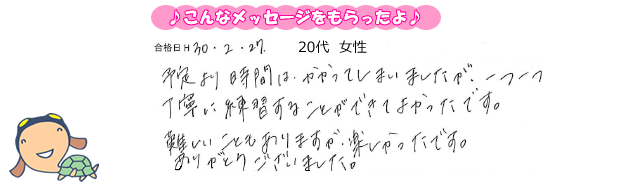 ♪こんなメッセージをもらったよ♪
合格日 H 30・2・27. 20代 女性
予定より時間は、かかってしまいましたが、一つ一つ
丁寧に練習することができてよかったです。
難しいこともありますが、楽しかったです。
ありがとうございました。